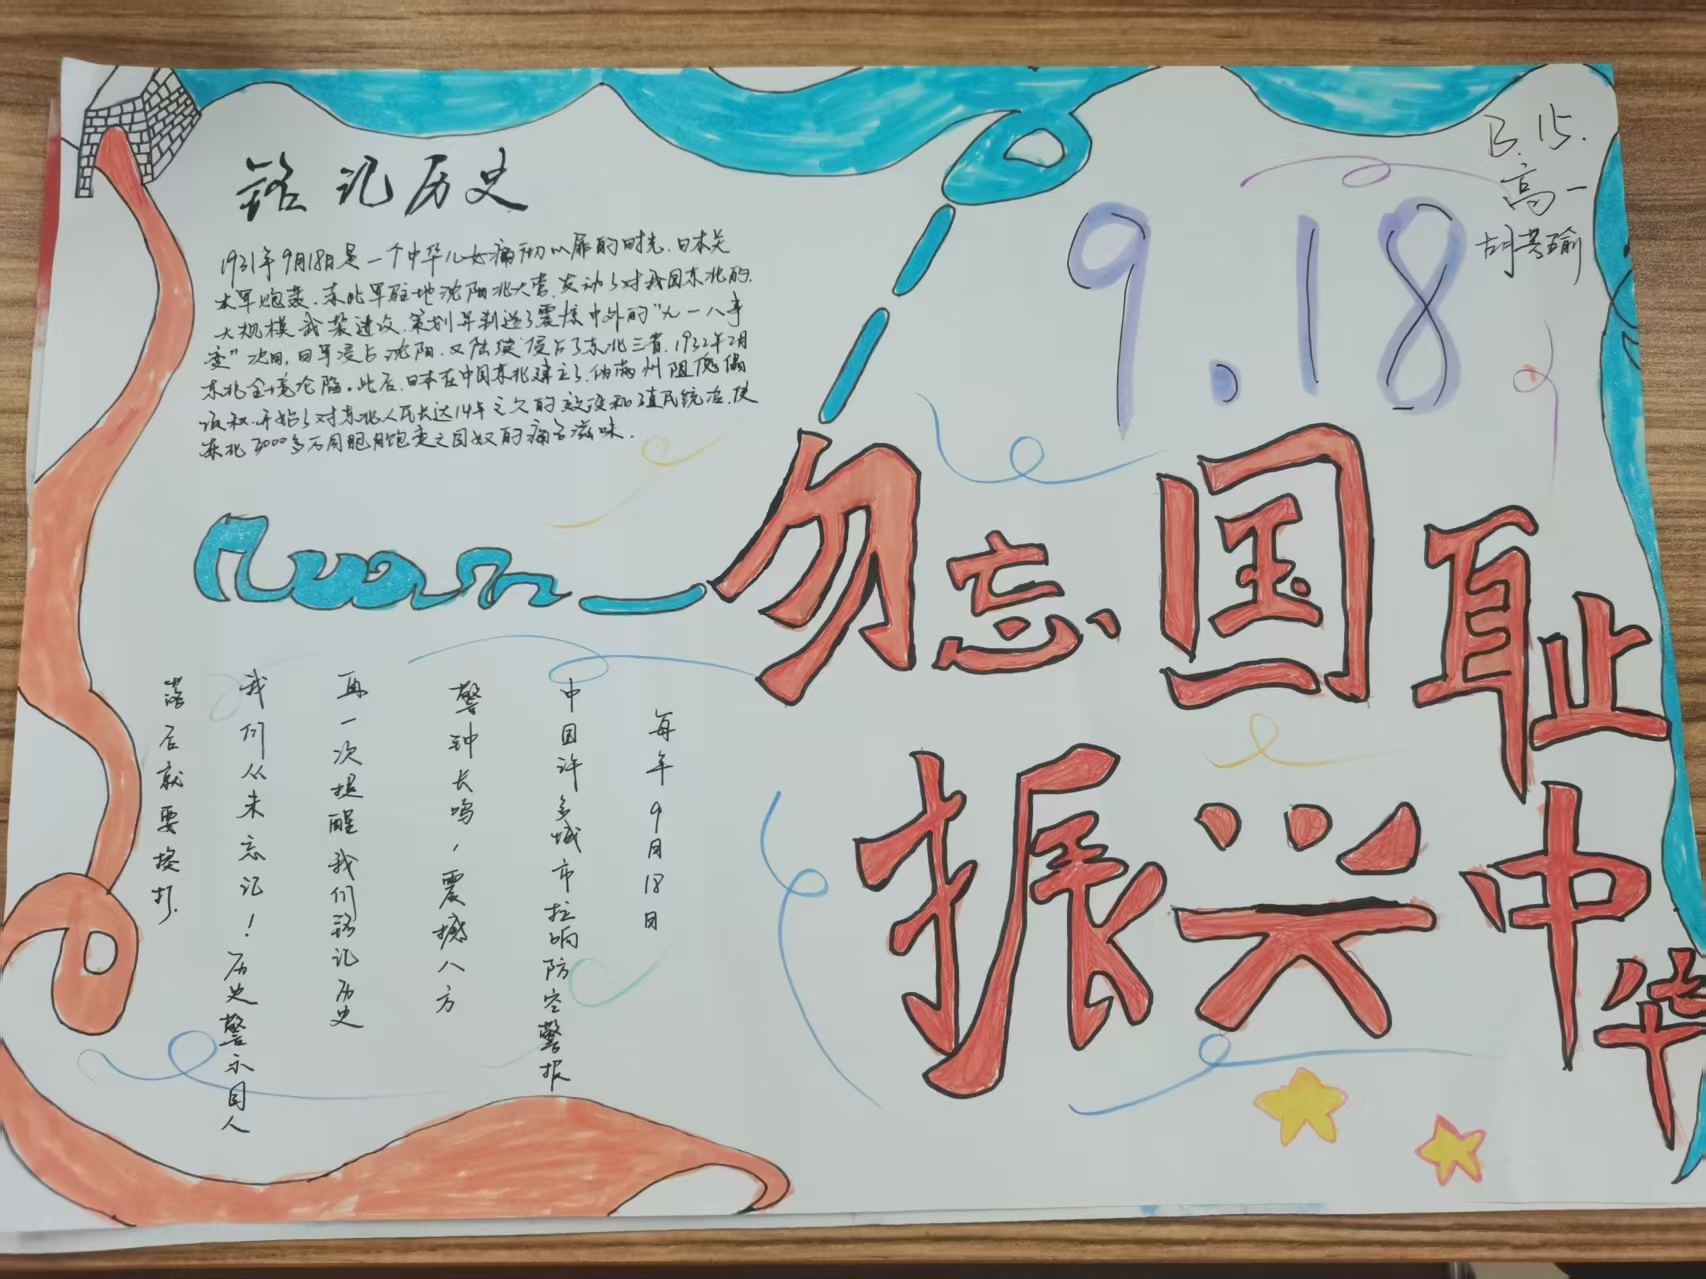 铭记历史
1931年9月18日是一个中华儿女痛彻心扉的时光.日本关
东军炮轰.东北军驻地沈阳北大营.发动了对我国东北的.
大规模武装进攻.策划并制造了震惊中外的“九一八事
变”次日,日军侵占沈阳.又陆续侵占了东北三省.1932年2月
东北全境沦陷。此后.日本在中国东北建立了.伪满州阻傀儡
政权.开始了对东北人民长达14年之久的奴役和殖民统治.使
东北3000多万同胞饱受亡国奴的痛苦滋味.
B.15.
高一
9.18
勿忘国耻
振兴中华
每年9月18日
中国许多城市拉响防空警报
警钟长鸣,震撼八方
再一次提醒我们铭记历史
我们从未忘记!历史警示国人
落后就要挨打.